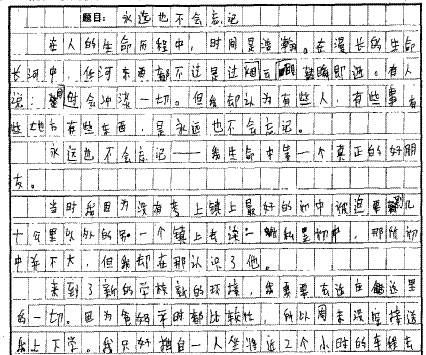 题目：永远也不会忘记
在人的生命历程中，时间是浩瀚。在漫长的生命
长河中，任何东西都不过是过烟云，瞬即逝。有人
说：时间会冲淡一切。但我却认为有些人，有些事，有
些地方有些东西，是永远也不会忘记。
永远也不会忘记——我生命中第一个真正的好朋
友。
当时我因为没有考上镇上最好的初中，被迫要到几
十公里以外的另一个镇上去读一私立初中，那所初
中并不大，但我却在那认识了他。
来到了新的学校新的环境，我要去适应这里
的一切。因为爸妈平时都比较忙，所以周末没空接送
我上下学。我只好独自一人坐将近2个小时的车程去